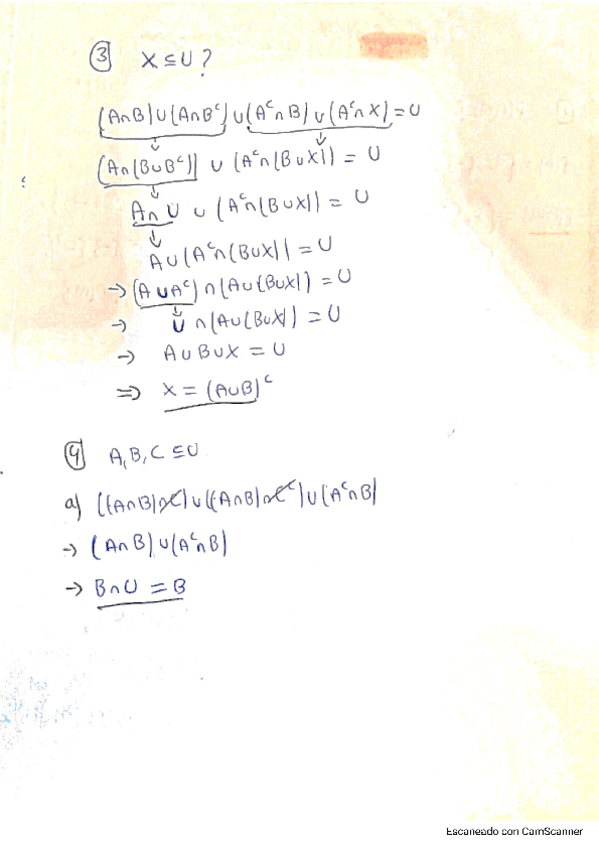 ③ X ⊆ U ?
(A∩B)∪(A∩Bᶜ)∪(Aᶜ∩B)∪(Aᶜ∩X)=U
(A∩(B∪Bᶜ)) ∪ (Aᶜ∩(B∪X)) = U
A∩U ∪ (Aᶜ∩(B∪X)) = U
A∪(Aᶜ∩(B∪X)) = U
→ (A∪Aᶜ)∩(A∪(B∪X)) = U
→ U∩(A∪(B∪X)) = U
→ A∪B∪X = U
⇒ X = (A∪B)ᶜ
④ A, B, C ⊆ U
a) ((A∩B)∩C)∪((A∩B)∩Cᶜ)∪(Aᶜ∩B)
→ (A∩B)∪(Aᶜ∩B)
→ B∩U = B
Escaneado con CamScanner